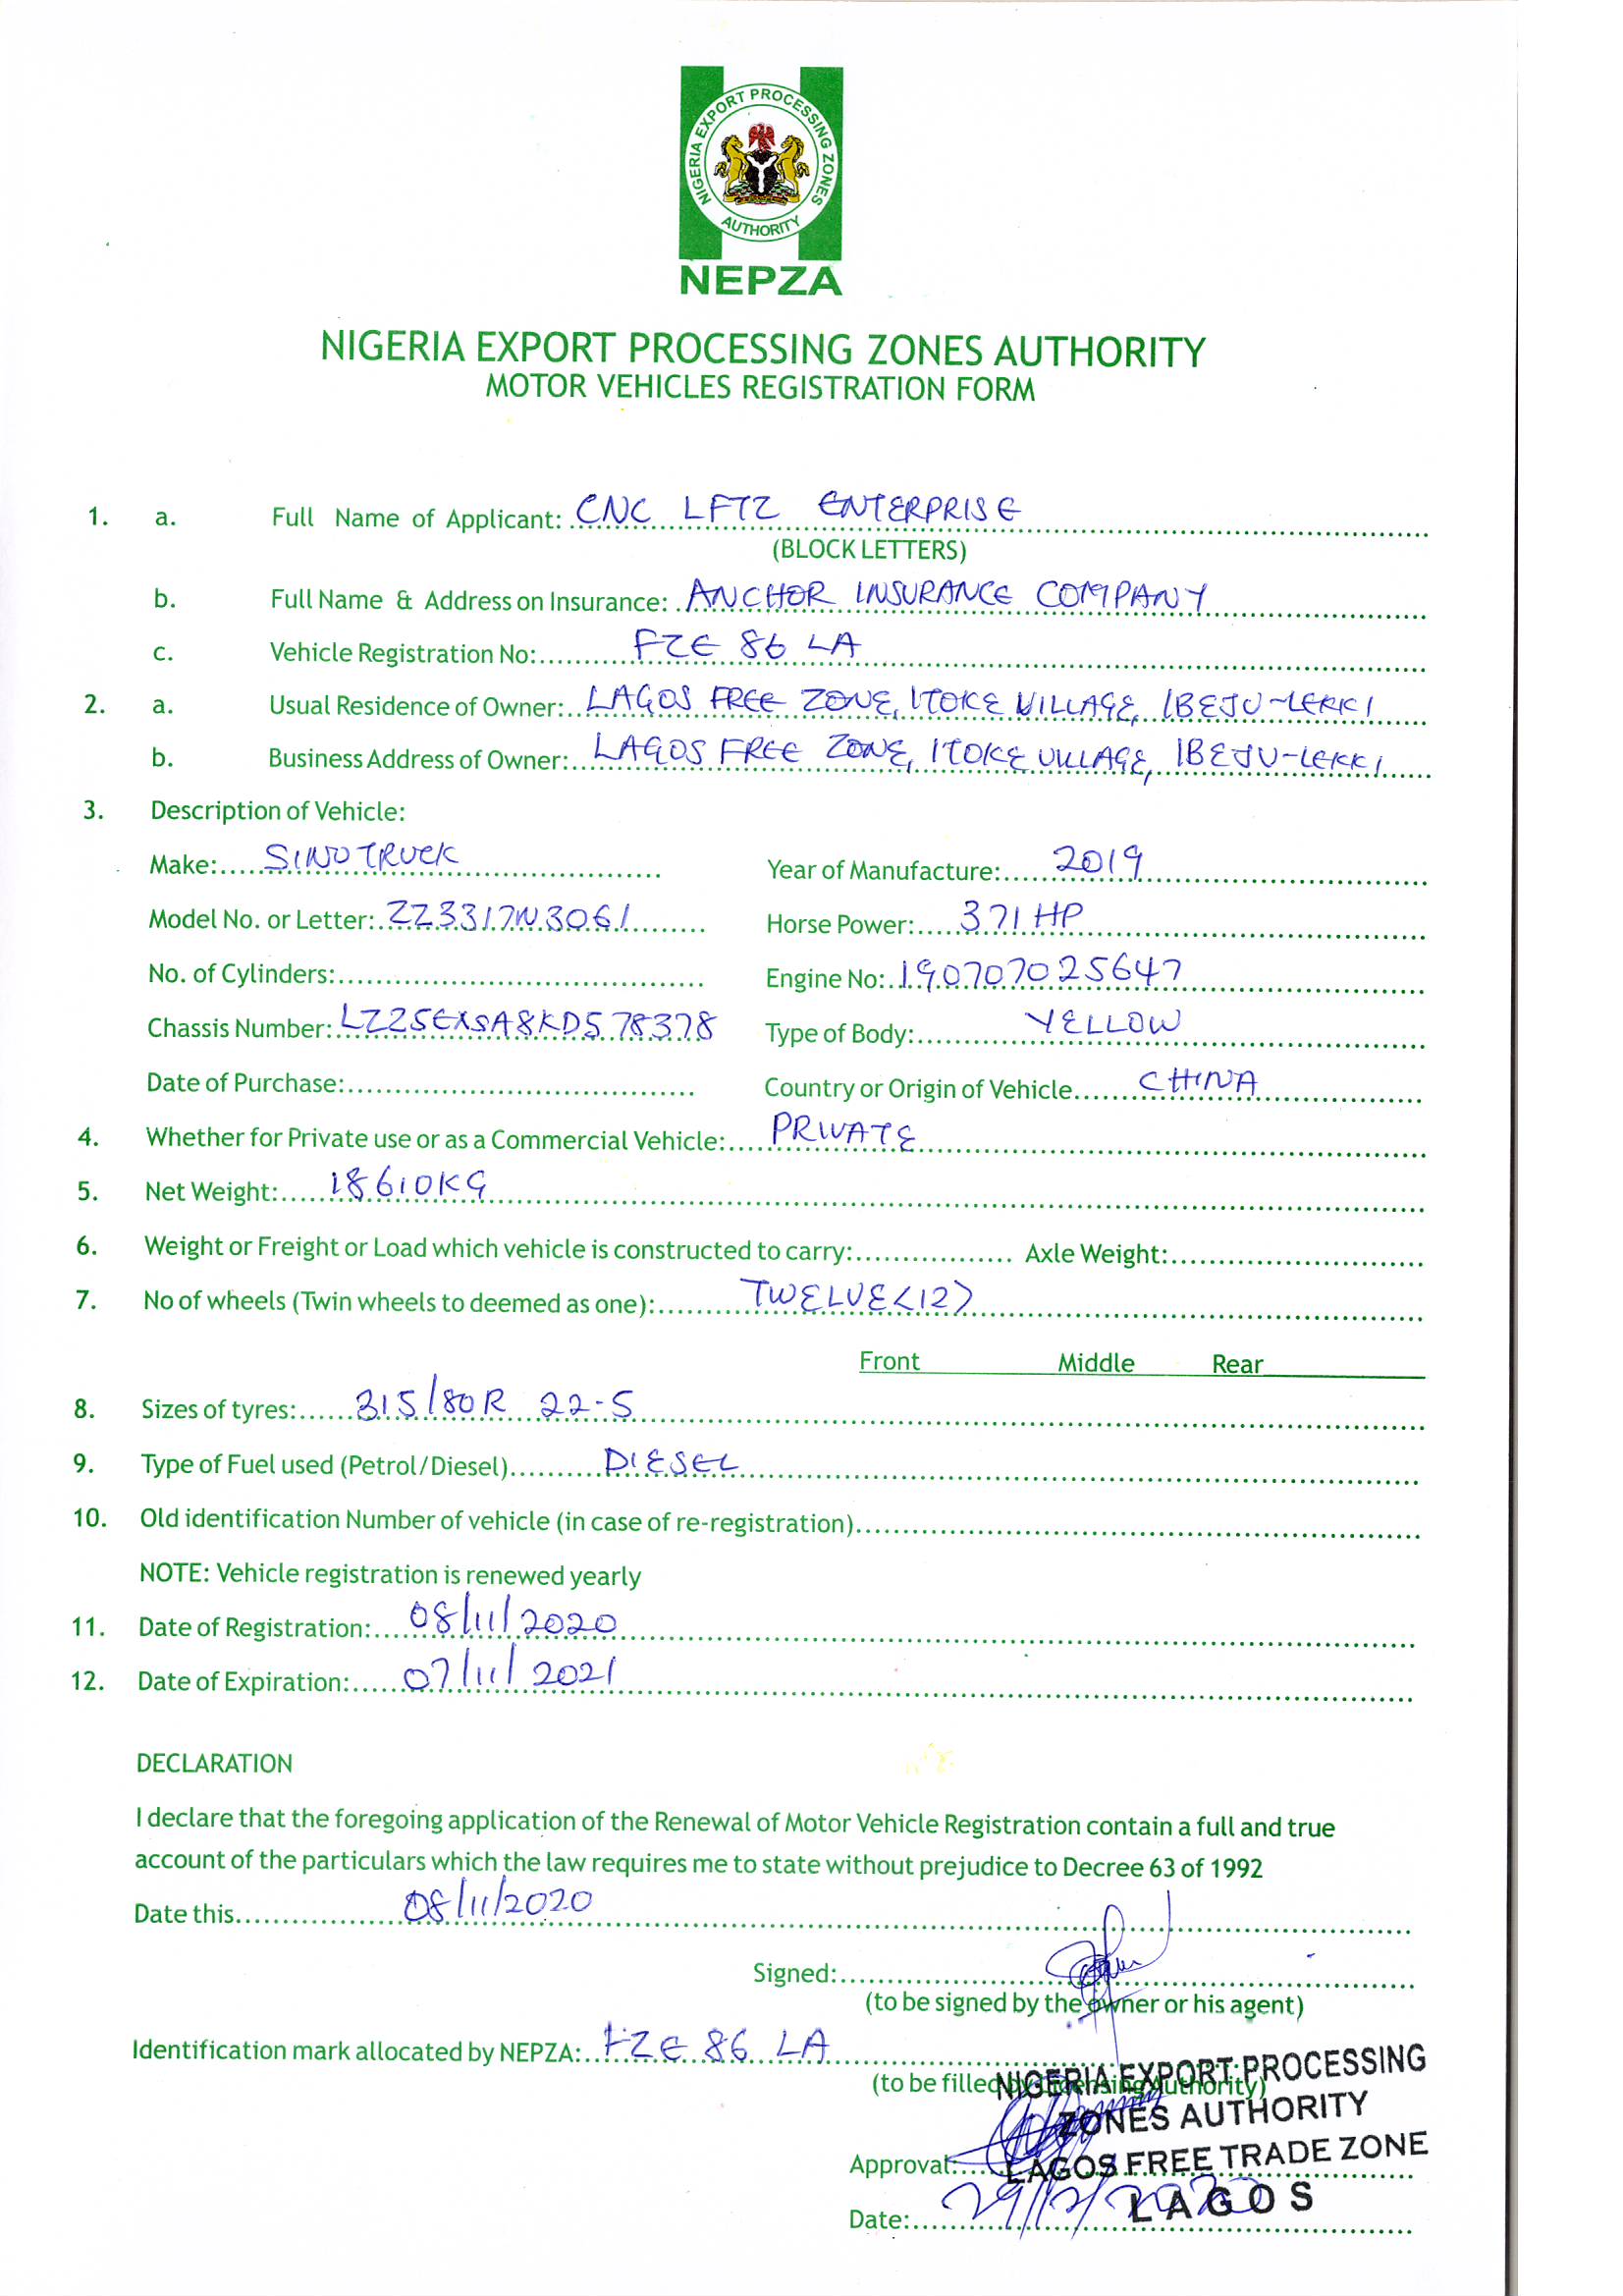 NIGERIA EXPORT PROCESSING ZONES
AUTHORITY
NEPZA
NIGERIA EXPORT PROCESSING ZONES AUTHORITY
MOTOR VEHICLES REGISTRATION FORM
1. a. Full Name of Applicant: CNC LFTZ ENTERPRISE
(BLOCK LETTERS)
b. Full Name & Address on Insurance: ANCHOR INSURANCE COMPANY
c. Vehicle Registration No: FZE 86 LA
2. a. Usual Residence of Owner: LAGOS FREE ZONE, ITOKE VILLAGE, IBEJU-LEKKI
b. Business Address of Owner: LAGOS FREE ZONE, ITOKE VILLAGE, IBEJU-LEKKI
3. Description of Vehicle:
Make: SINOTRUCK Year of Manufacture: 2019
Model No. or Letter: ZZ3317N3061 Horse Power: 371 HP
No. of Cylinders: Engine No: 190707025647
Chassis Number: LZZ5EXSA8KD578378 Type of Body: YELLOW
Date of Purchase: Country or Origin of Vehicle CHINA
4. Whether for Private use or as a Commercial Vehicle: PRIVATE
5. Net Weight: 18610KG
6. Weight or Freight or Load which vehicle is constructed to carry: Axle Weight:
7. No of wheels (Twin wheels to deemed as one): TWELVE (12)
Front Middle Rear
8. Sizes of tyres: 315/80R 22-5
9. Type of Fuel used (Petrol/Diesel) DIESEL
10. Old identification Number of vehicle (in case of re-registration)
NOTE: Vehicle registration is renewed yearly
11. Date of Registration: 08/11/2020
12. Date of Expiration: 07/11/2021
DECLARATION
I declare that the foregoing application of the Renewal of Motor Vehicle Registration contain a full and true
account of the particulars which the law requires me to state without prejudice to Decree 63 of 1992
Date this 08/11/2020
Signed:
(to be signed by the owner or his agent)
Identification mark allocated by NEPZA: FZE 86 LA
(to be filled by Licensing Authority)
NIGERIA EXPORT PROCESSING
ZONES AUTHORITY
Approval:
LAGOS FREE TRADE ZONE
LAGOS
Date: